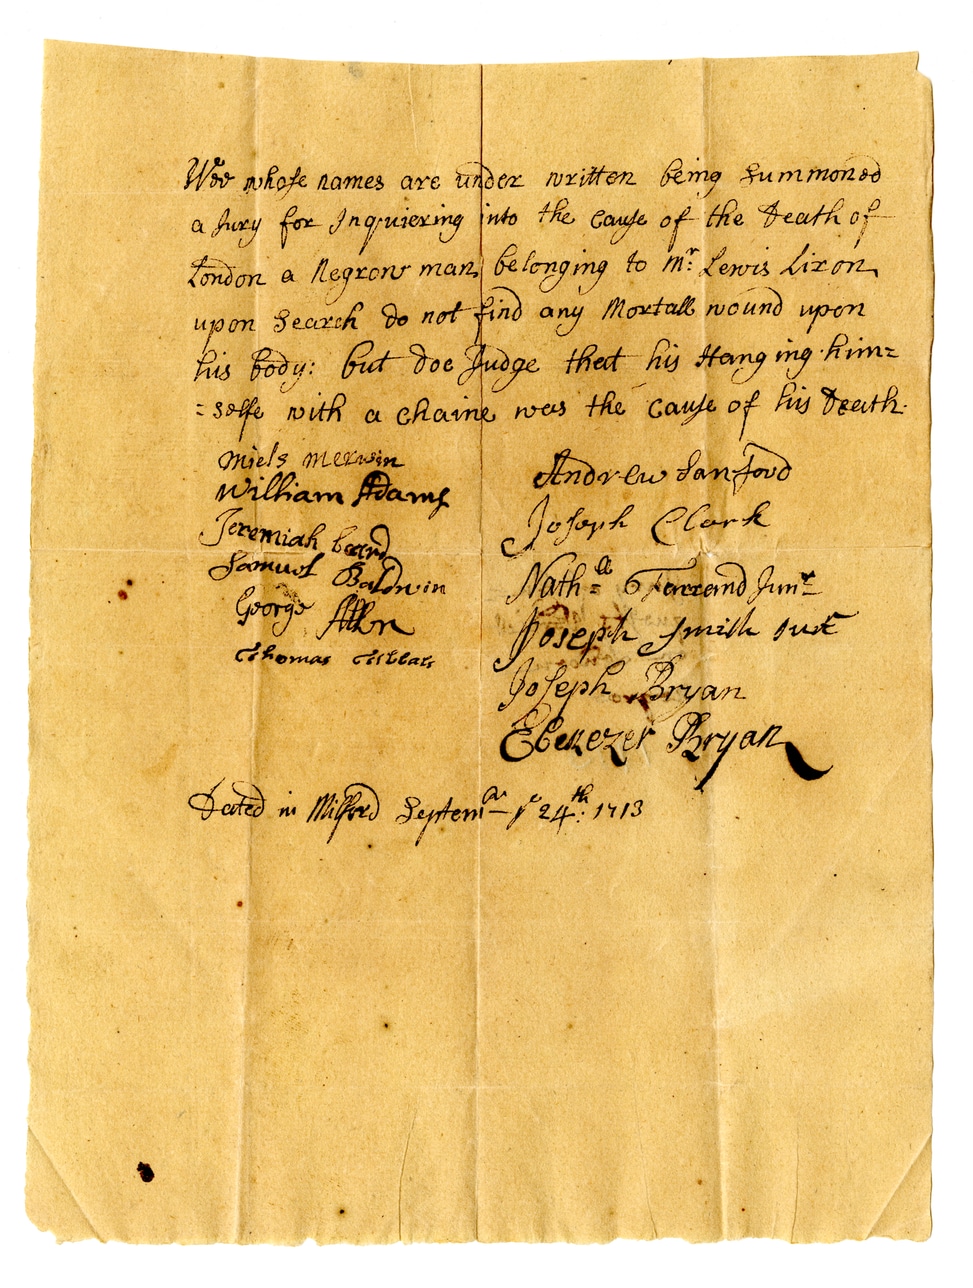 Wee whose names are under written being Summoned
a Jury for Inquiering into the Cause of the Death of
London a Negrow man, belonging to Mr Lewis Liron,
upon Search do not find any Mortall wound upon
his body: but doe Judge that his Hanging him=
=selfe with a Chaine was the Cause of his Death.
Miels Merwin
William Adams
Jeremiah beard
Samuel Baldwin
George Allin
Thomas Tibbals
Andrew Sanford
Joseph Clark
Nathll Farrand Junr
Joseph Smith
Joseph Bryan
Ebenezer Bryan
Dated in Milford Septembr ye 24th: 1713